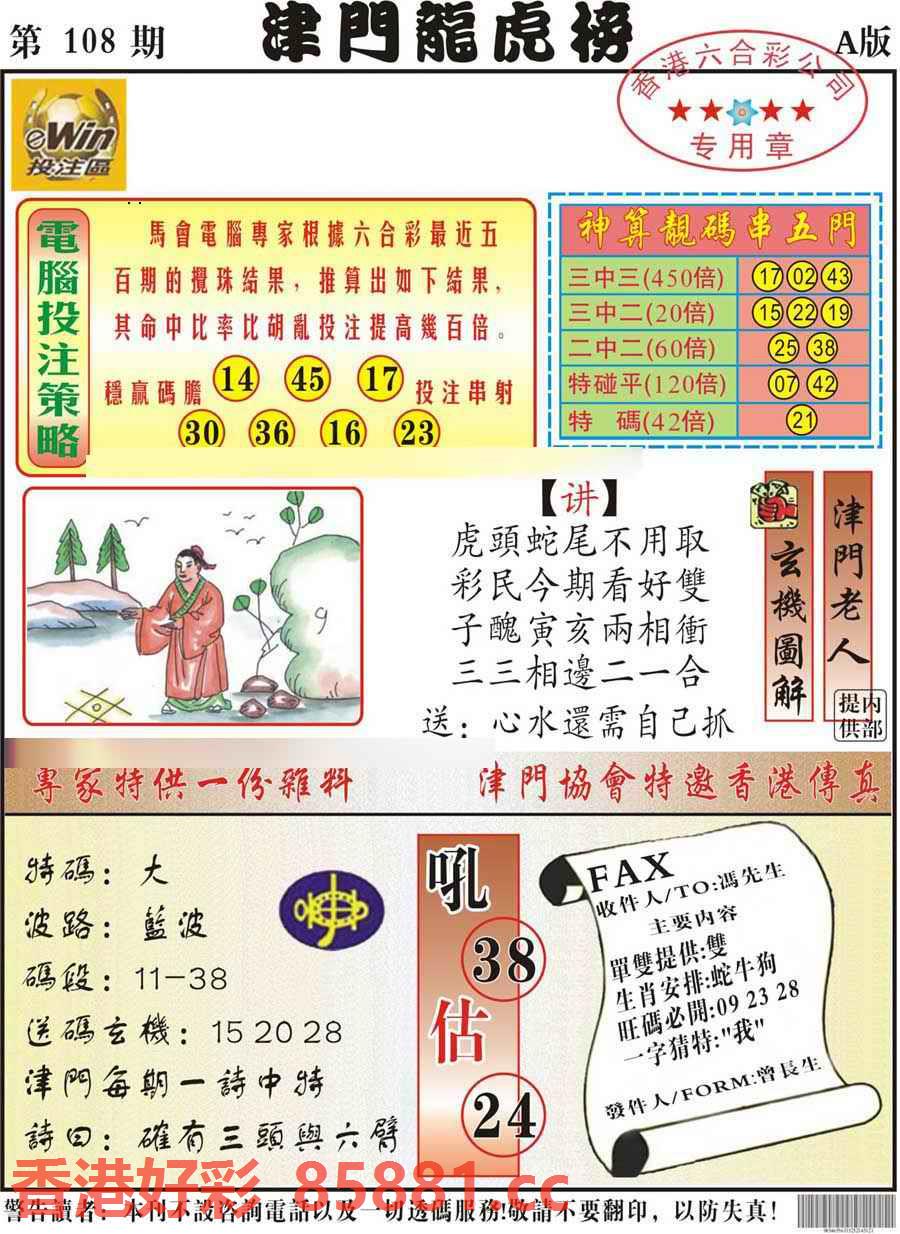 第 108 期
津門龍虎榜
A版
香港六合彩公司
专用章
eWin
投注區
電腦投注策略
馬會電腦專家根據六合彩最近五
百期的攪珠結果，推算出如下結果，
其命中比率比胡亂投注提高幾百倍。
穩贏碼膽 14 45 17 投注串射
30 36 16 23
神算靚碼串五門
三中三(450倍) 17 02 43
三中二(20倍) 15 22 19
二中二(60倍) 25 38
特碰平(120倍) 07 42
特 碼(42倍) 21
【讲】
虎頭蛇尾不用取
彩民今期看好雙
子醜寅亥兩相衝
三三相邊二一合
送：心水還需自己抓
玄機圖解
津門老人
内部提供
專家特供一份雜料
津門協會特邀香港傳真
特碼：大
波路：藍波
碼段：11-38
送碼玄機：15 20 28
津門每期一詩中特
詩曰：確有三頭與六臂
吼
38
估
24
FAX
收件人/TO:馮先生
主要内容
單雙提供:雙
生肖安排:蛇牛狗
旺碼必開:09 23 28
一字猜特:"我"
發件人/FORM:曾長生
香港好彩 85881.cc
警告讀者：本刊不設咨詢電話以及一切透碼服務!敬請不要翻印，以防失真!